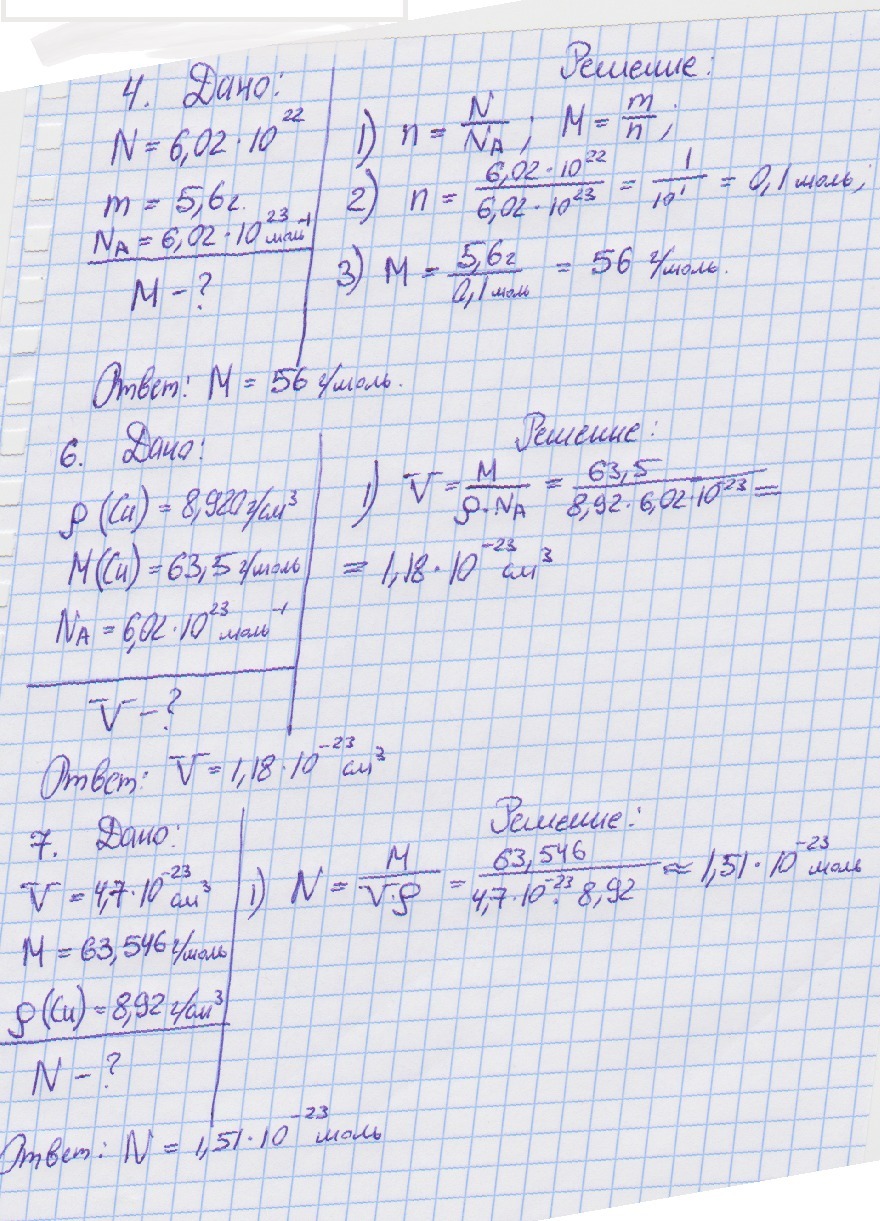 4. Дано:
N = 6,02·10²²
m = 5,6г.
N_A = 6,02·10²³ моль⁻¹
M - ?
Решение:
1) n = N/N_A; M = m/n;
2) n = 6,02·10²²/6,02·10²³ = 1/10¹ = 0,1 моль;
3) M = 5,6г/0,1моль = 56 г/моль.
Ответ: M = 56 г/моль.
6. Дано:
ρ(Cu) = 8,920 г/см³
M(Cu) = 63,5 г/моль
N_A = 6,02·10²³ моль⁻¹
V - ?
Решение:
1) V = M/ρ·N_A = 63,5/8,92·6,02·10²³ =
= 1,18·10⁻²³ см³
Ответ: V = 1,18·10⁻²³ см³
7. Дано:
V = 4,7·10⁻²³ см³
M = 63,546 г/моль
ρ(Cu) = 8,92 г/см³
N - ?
Решение:
1) N = M/V·ρ = 63,546/4,7·10⁻²³·8,92 ≈ 1,51·10⁻²³ моль
Ответ: N = 1,51·10⁻²³ моль